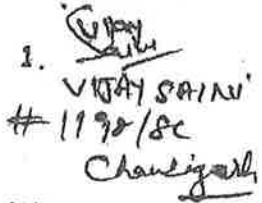 Vijay
Saini
1.
VIJAY SAINI
# 1198/8C
Chandigarh